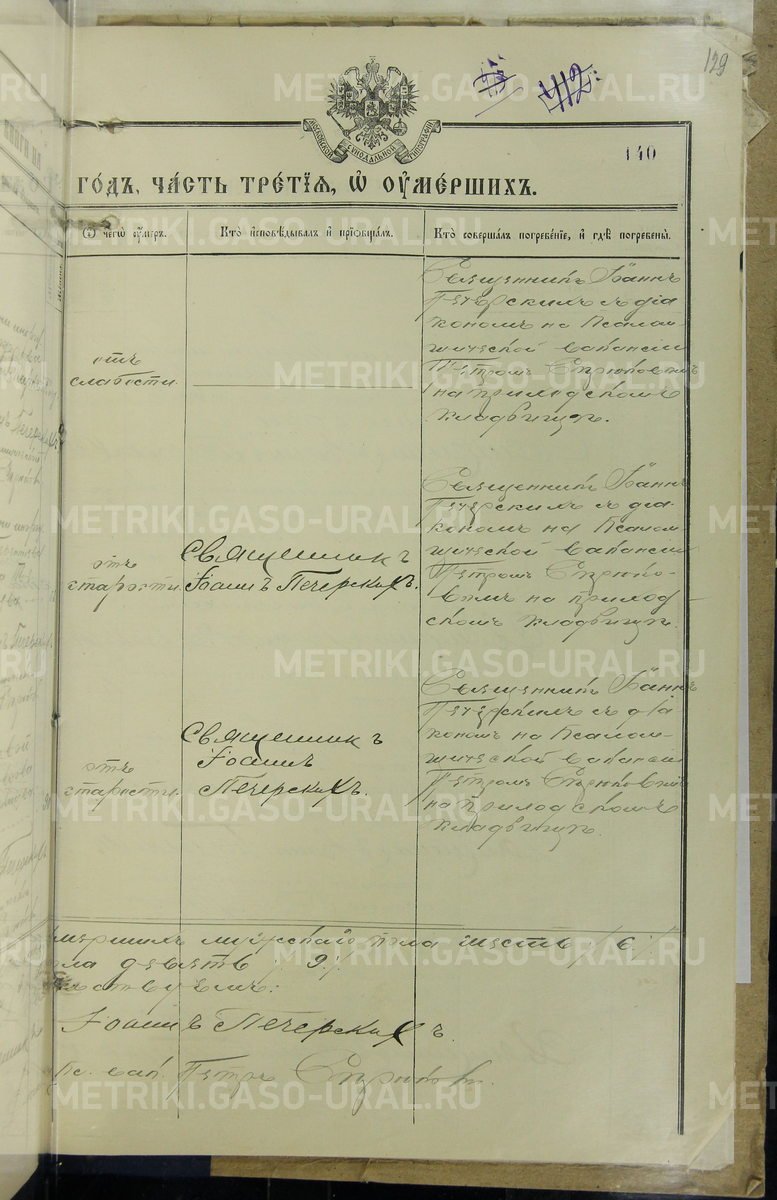 129
412:
140
МОСКОВСКОЙ СѴНОДАЛЬНОЙ ТИПОГРАФІИ
ГО́ДЪ, ЧА́СТЬ ТРЕ́ТІѦ, Ѡ҆ ОУ҆МЕ́РШИХЪ.
Ѿ чегѡ̀ ᲂу҆́меръ.
Кто̀ и҆сповѣ́дывалъ и҆ прїѡбща́лъ.
Кто̀ соверша́лъ погребе́нїе, и҆ гдѣ̀ погребены̀.
отъ
слабости.
Священникъ Іоаннъ
Печерскихъ съ діа
кономъ на Псалом-
щической вакансіи
Петромъ Спрюковымъ
на приходскомъ
кладбищѣ.
отъ
старости.
Священникъ
Іоаннъ Печерскихъ.
Священникъ Іоаннъ
Печерскихъ съ діа-
кономъ на Псалом-
щической вакансіи
Петромъ Спрюко-
вымъ на приход-
скомъ кладбищѣ.
отъ
старости.
Священникъ
Іоаннъ
Печерскихъ.
Священникъ Іоаннъ
Печерскихъ съ діа
кономъ на Псалом-
щической вакансіи
Петромъ Спрюковымъ
на приходскомъ
кладбищѣ.
мершихъ мужскаго пола шесть /6/.
ла девять /9/.
ствуемъ:
Іоаннъ Печерскихъ.
Пс. вак. Петръ
METRIKI.GASO-URAL.RU